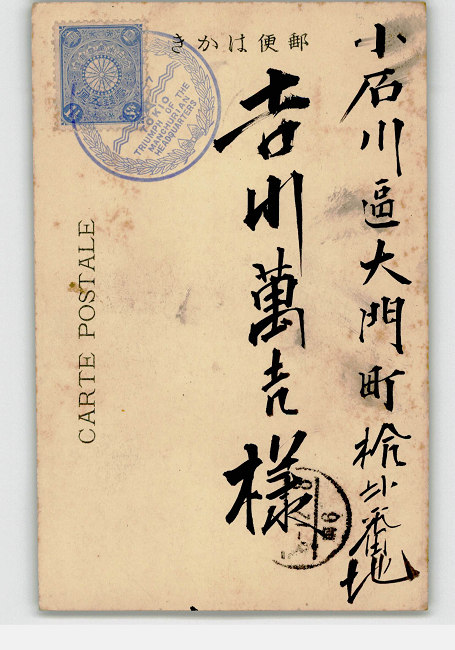 郵便はかき
小石川區大門町拾弐番地
吉川萬吉様
CARTE POSTALE
TOKIO
TRIUMPH OF THE
MANCHURIAN
HEADQUARTERS